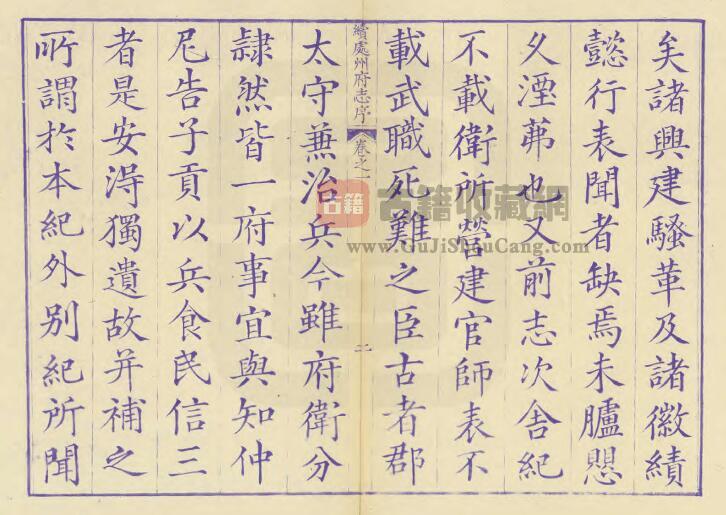 矣諸興建騷革及諸徽績
懿行表聞者缺焉未臚愳
久湮茀也又前志次舍紀
不載衛所營建官師表不
載武職死難之臣古者郡
續處州府志序
卷之一
二
太守兼治兵今雖府衛分
隸然皆一府事宜與知仲
尼告子貢以兵食民信三
者是安淂獨遺故并補之
所謂於本紀外別紀所聞
古籍
古籍收藏網
www.GuJiShouCang.com